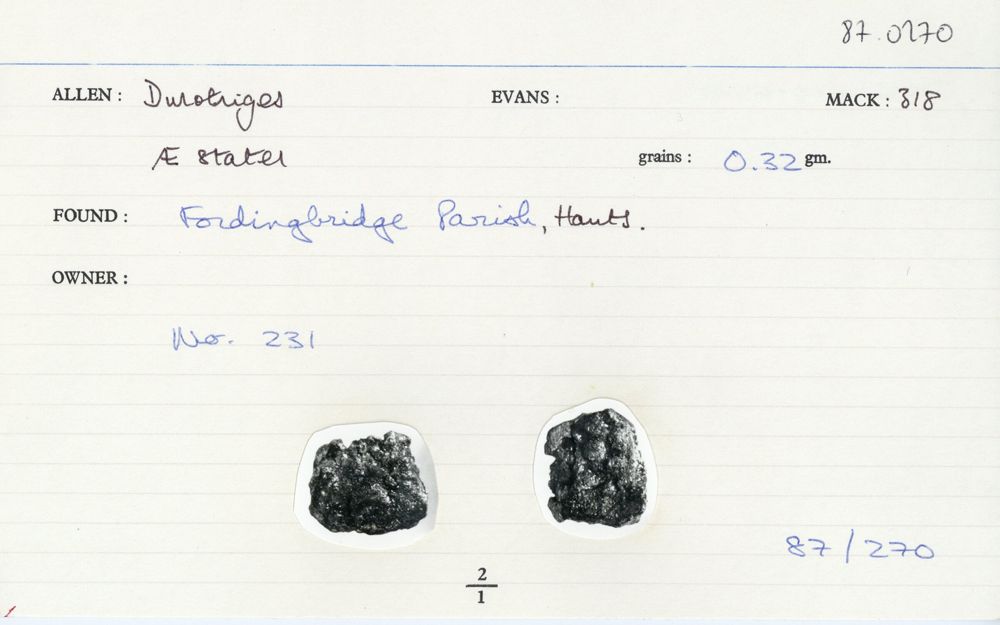 87.0270
ALLEN : Durotriges EVANS : MACK : 318
Æ stater grains : 0.32 gm.
FOUND : Fordingbridge Parish, Hants.
OWNER :
No. 231
87/270
2
1